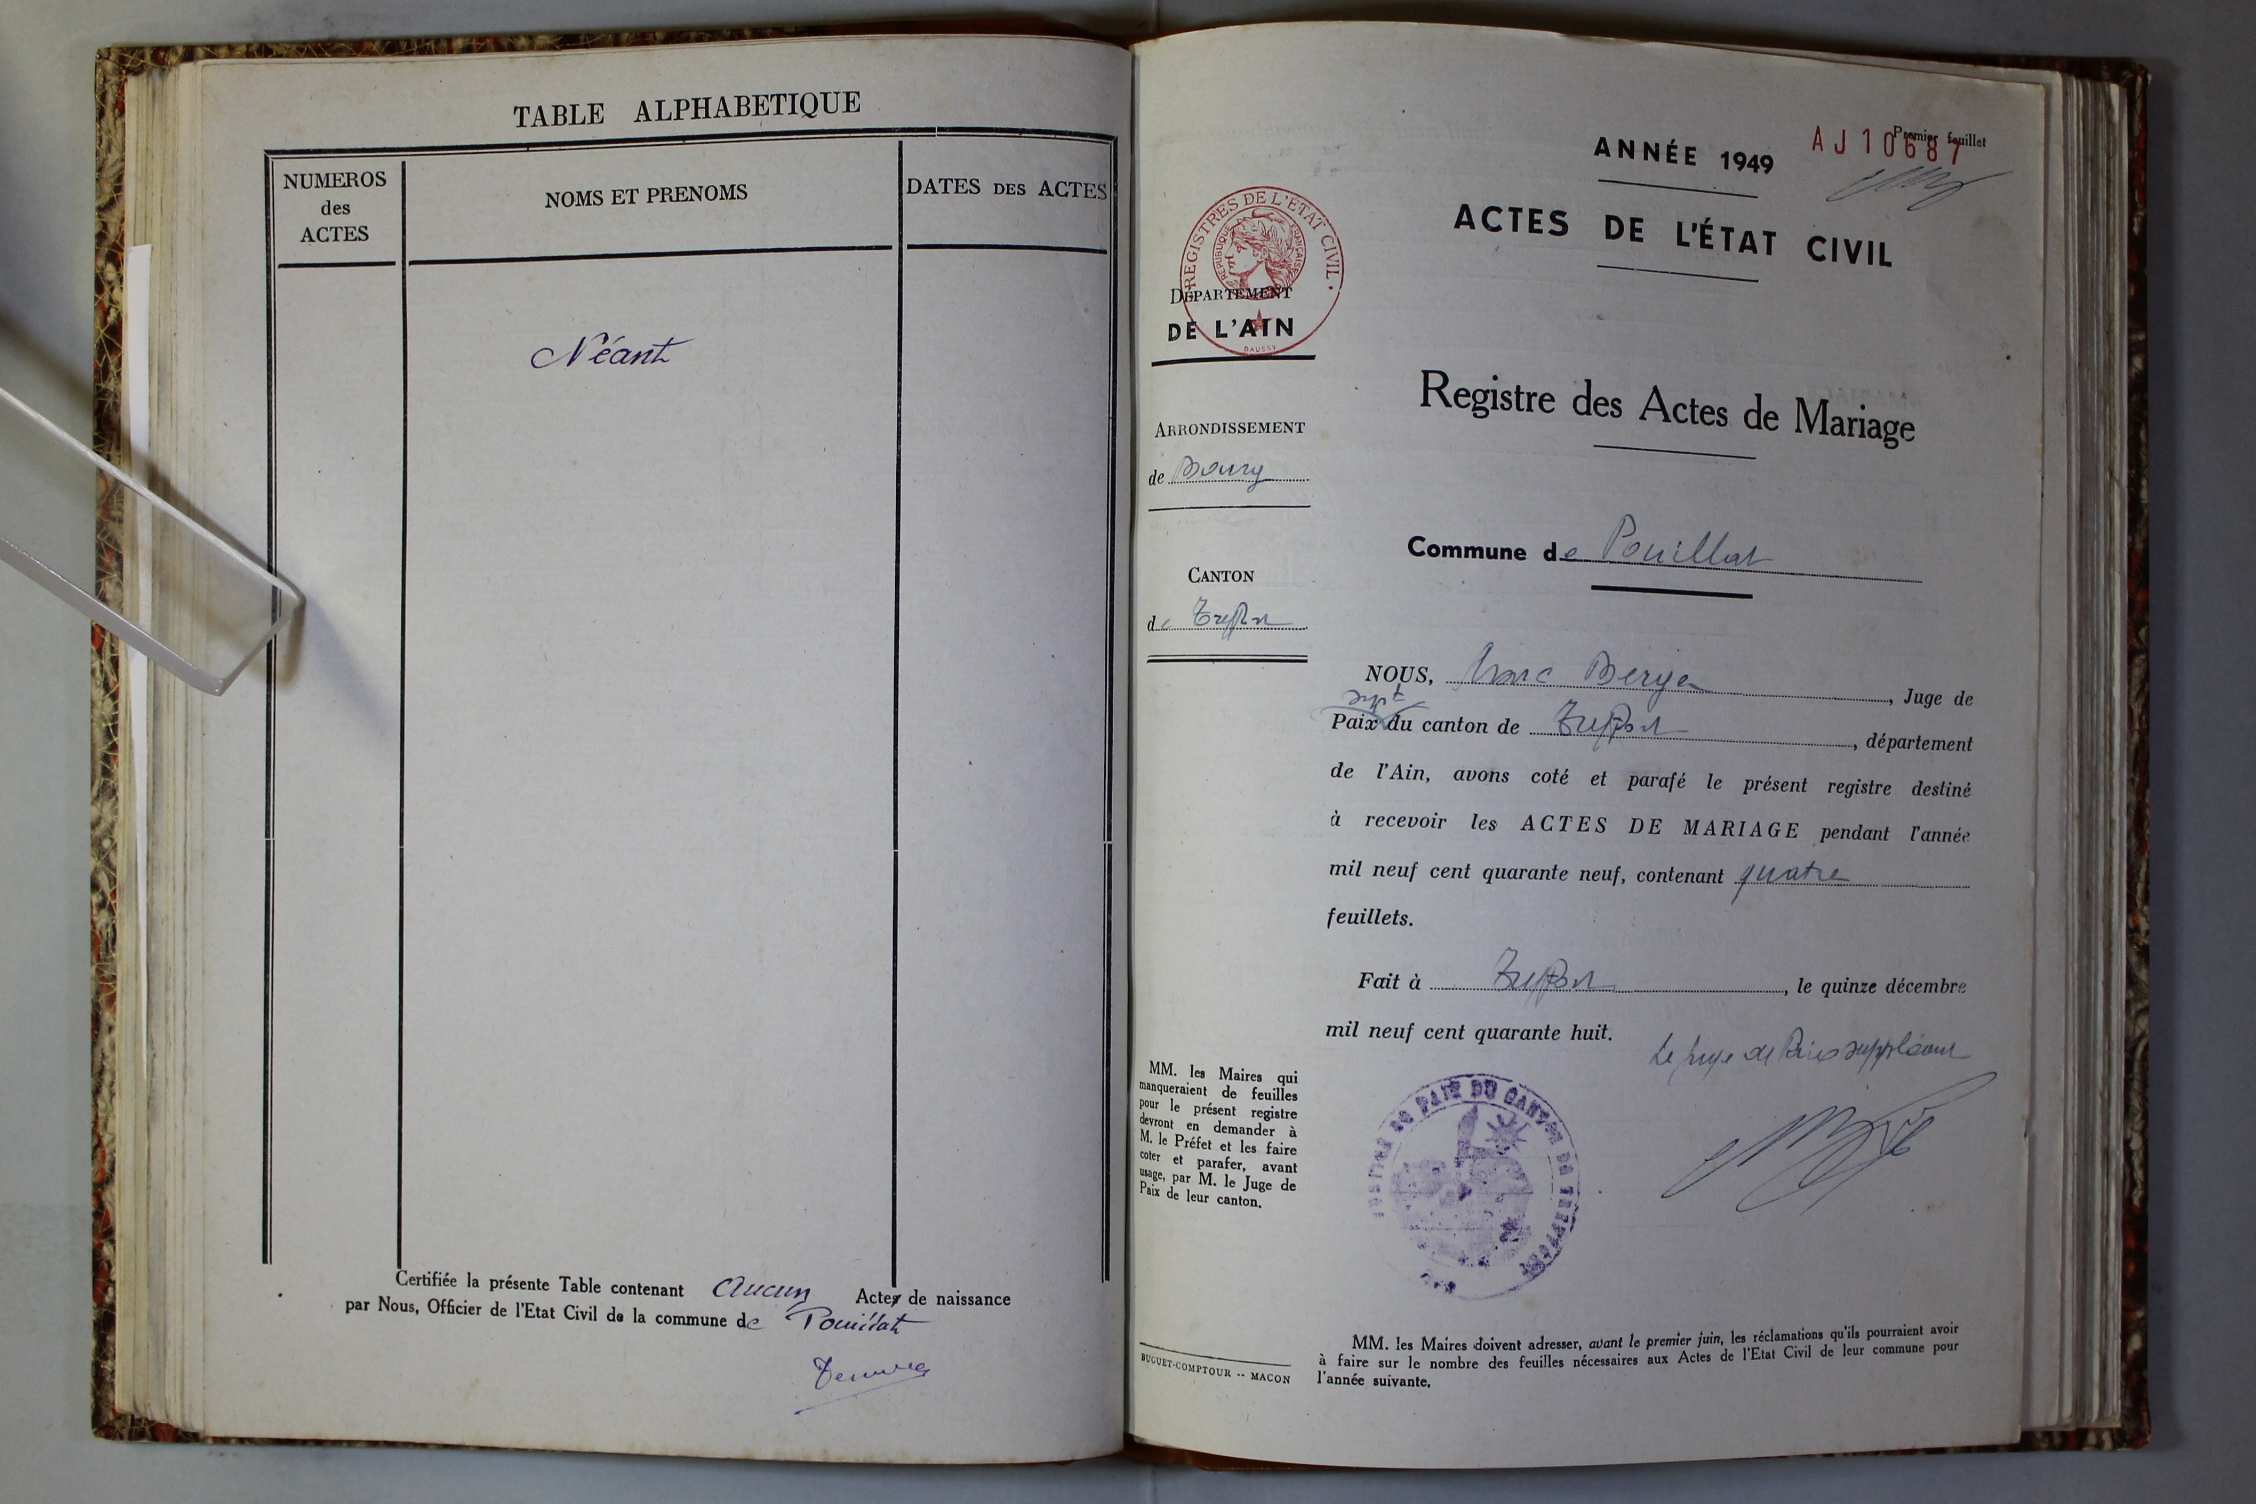 TABLE ALPHABETIQUE
NUMEROS
des
ACTES
NOMS ET PRENOMS
DATES DES ACTES
Néant
Certifiée la présente Table contenant aucun Acte de naissance
par Nous, Officier de l'Etat Civil de la commune de Pouillat
Premier feuillet
AJ 10687
ANNÉE 1949
ACTES DE L'ÉTAT CIVIL
REGISTRES DE L'ETAT CIVIL
REPUBLIQUE FRANÇAISE
DÉPARTEMENT
DE L'AIN
Registre des Actes de Mariage
ARRONDISSEMENT
de Bourg
Commune de Pouillat
CANTON
de Treffort
NOUS, Marc Berger, Juge de
suppt
Paix du canton de Treffort, département
de l'Ain, avons coté et parafé le présent registre destiné
à recevoir les ACTES DE MARIAGE pendant l'année
mil neuf cent quarante neuf, contenant quatre
feuillets.
Fait à Treffort, le quinze décembre
mil neuf cent quarante huit.
Le juge de Paix suppléant
JUSTICE DE PAIX DU CANTON DE TREFFORT
MM. les Maires qui
manqueraient de feuilles
pour le présent registre
devront en demander à
M. le Préfet et les faire
coter et parafer, avant
usage, par M. le Juge de
Paix de leur canton.
BUGUET-COMPTOUR -- MACON
MM. les Maires doivent adresser, avant le premier juin, les réclamations qu'ils pourraient avoir
à faire sur le nombre des feuilles nécessaires aux Actes de l'Etat Civil de leur commune pour
l'année suivante.